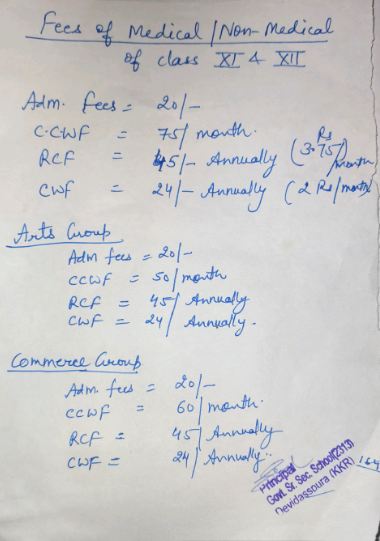 Fees of Medical/Non-Medical
of class XI & XII
Adm. fees = 20/-
C.CWF = 75/month.
RCF = 45/- Annually (Rs 3.75/month
CWF = 24/- Annually (2 Rs/month)
Arts Group
Adm fees = 20/-
CCWF = 50/month
RCF = 45/ Annually
CWF = 24/ Annually.
Commerce Group
Adm. fees = 20/-
CCWF = 60/month.
RCF = 45/ Annually
CWF = 24/ Annually.
Principal
Govt. Sr. Sec. School(2313)
Nevidasspura (KKR)